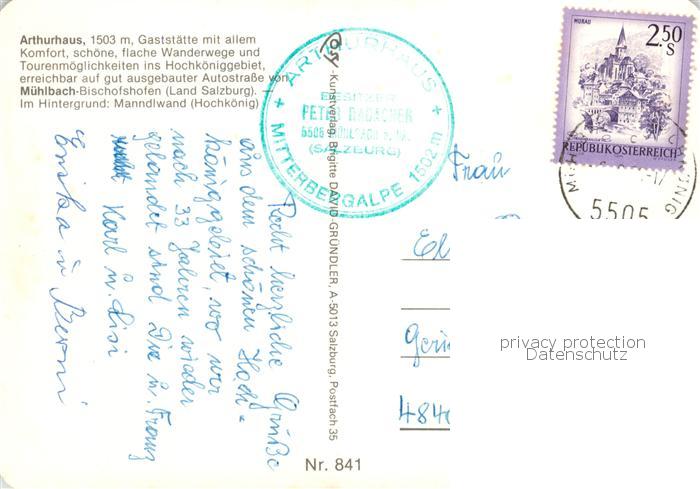 Arthurhaus, 1503 m, Gaststätte mit allem
Komfort, schöne, flache Wanderwege und
Tourenmöglichkeiten ins Hochköniggebiet,
erreichbar auf gut ausgebauter Autostraße von
Mühlbach-Bischofshofen (Land Salzburg).
Im Hintergrund: Manndlwand (Hochkönig)
ARTHURHAUS
BESITZER
PETER RADACHER
5505 MÜHLBACH a. H.
(SALZBURG)
MITTERBERGALPE 1502 m
-Kunstverlag, Brigitte DAVID-GRÜNDLER, A-5013 Salzburg, Postfach 35
MURAU
2,50
S
REPUBLIK ÖSTERREICH
5505
Recht herzliche Grüße
aus dem schönen Hoch-
königgebiet, wo wir
nach 33 Jahren wieder
gelandet sind Die u. Franz
Karl u. Lisi
Erika u. Berni
Frau
El
484
privacy protection
Datenschutz
Nr. 841